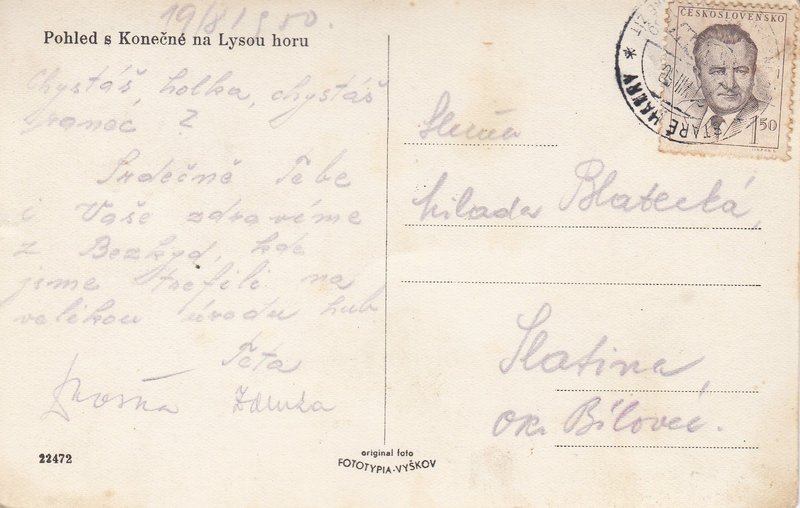 19/8 1950.
Pohled s Konečné na Lysou horu
Chystáš holka, chystáš
vánoc ?
Srdečně Tebe
i Vaše zdravíme
z Bezkyd, kde
jsme trefili na
velikou úrodu hub.
Teta
Zdenka
22472
original foto
FOTOTYPIA-VYŠKOV
ČESKOSLOVENSKO
1 50
STARÉ HAMRY *
Slečna
Milada Blatecká,
Slatina,
ok. Bílovec.